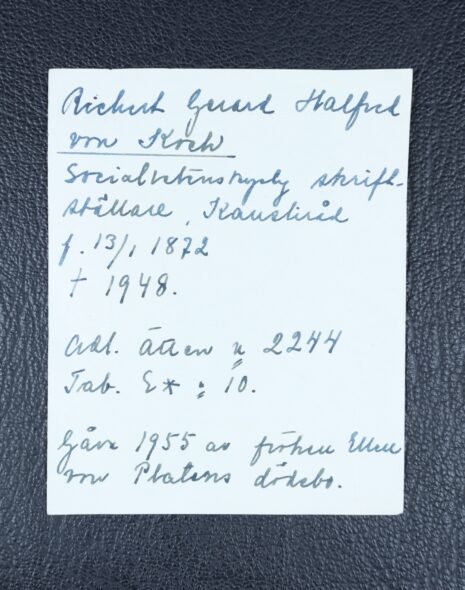 Richert Gerard Halfred
von Koch
Socialvetenskaplig skrift-
ställare, Kansliråd
f. 13/1 1872
† 1948.
Adl. Ätten n 2244
Tab. E* : 10.
Gåva 1955 av fröken Ellen
von Platens dödsbo.